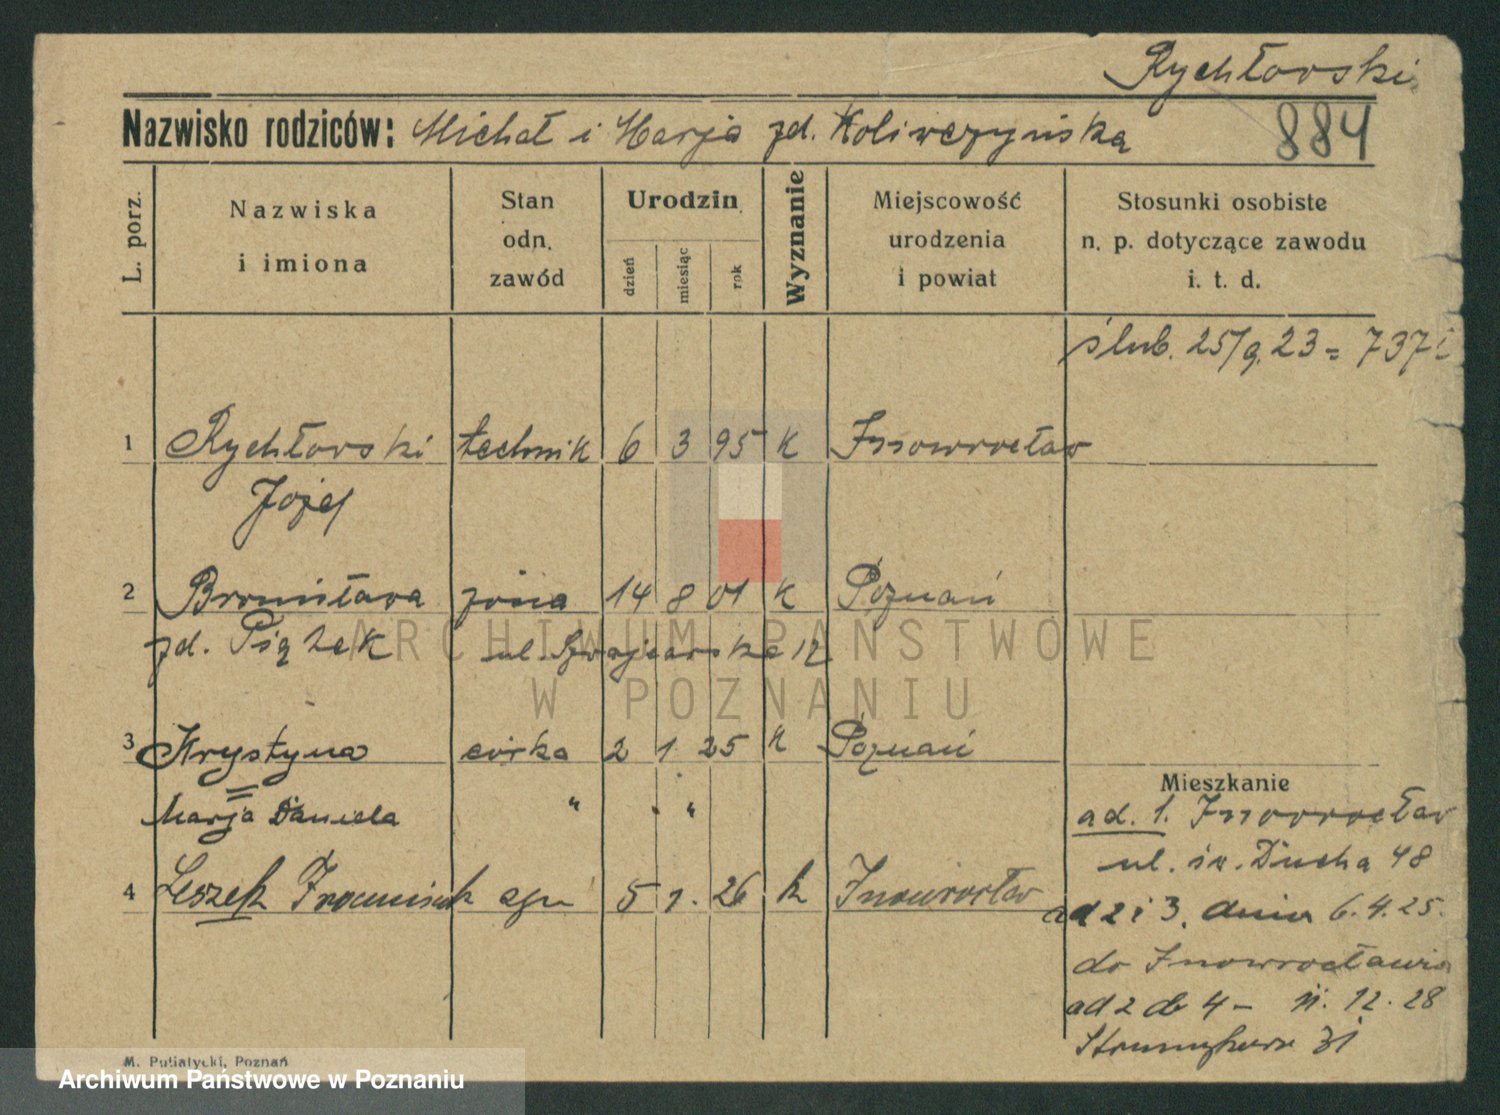 Rychłovski
Nazwisko rodziców: Michał i Marja zd. Koliwczyńska 884
L. porz.
Nazwiska i imiona
Stan odn. zawód
Urodzin
dzień miesiąc rok
Wyznanie
Miejscowość urodzenia i powiat
Stosunki osobiste n. p. dotyczące zawodu i. t. d.
ślub. 25/9. 23 = 737
1 Rychłovski technik 6 3 95 K Inowrocław
Józef
2 Bronisława żona 14 8 01 K Poznań
zd. Piątek ul. 12
3 Krystyna córka 2 1 25 K Poznań
Marja Daniela " "
Mieszkanie
ad. 1. Inowrocław
ul. św. Ducha 48
4 Leszek Franciszek syn 5 1. 26 k Inowrocław
ad 2 i 3. dnia 6.4.25.
do Inowrocławia
ad 2 do 4 - 11. 12. 28
31
M. Putiatycki, Poznań
ARCHIWUM PAŃSTWOWE
W POZNANIU
Archiwum Państwowe w Poznaniu